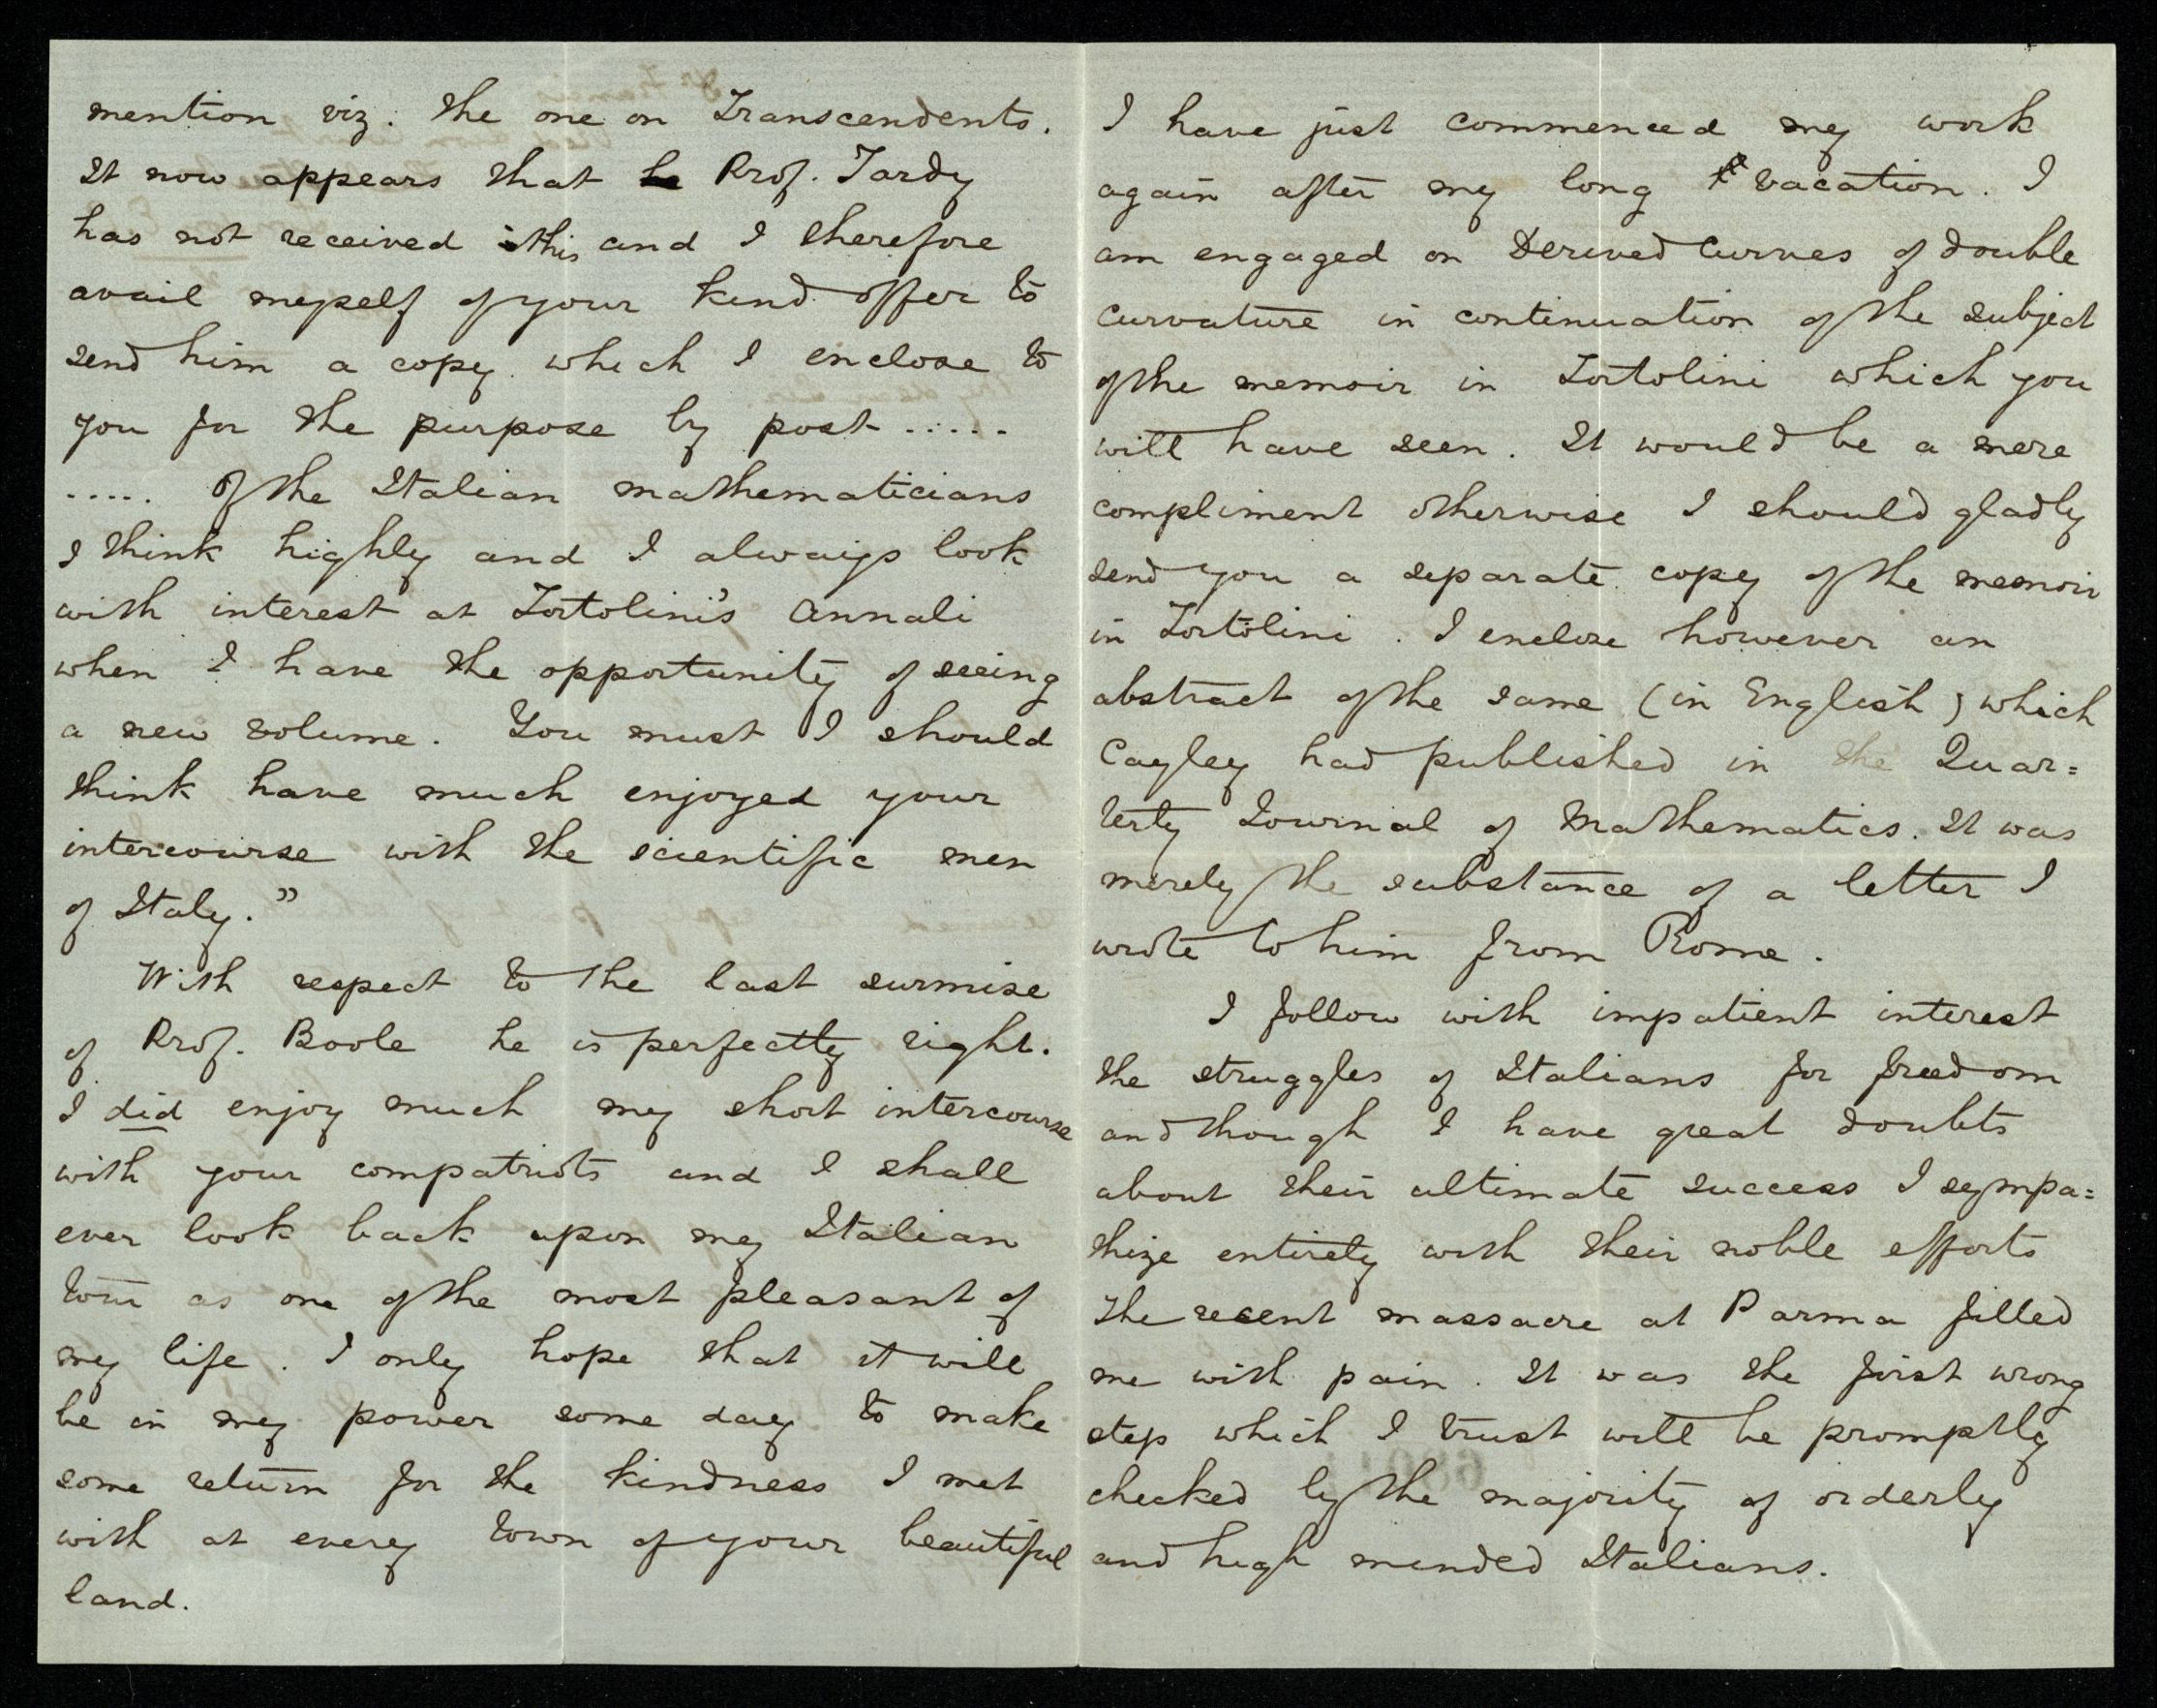 mention viz. the one on Transcendents.
It now appears that he Prof. Tardy
has not received this and I therefore
avail myself of your kind offer to
send him a copy which I enclose to
you for the purpose by post.....
..... Of the Italian mathematicians
I think highly and I always look
with interest at Tortolini's Annali
when I have the opportunity of seeing
a new volume. You must I should
think have much enjoyed your
intercourse with the scientific men
of Italy."
With respect to the last surmise
of Prof. Boole he is perfectly right.
I did enjoy much my short intercourse
with your compatriots and I shall
ever look back upon my Italian
tour as one of the most pleasant of
my life. I only hope that it will
be in my power some day to make
some return for the kindness I met
with at every town of your beautiful
land.
I have just commenced my work
again after my long vacation. I
am engaged on Derived Curves of double
Curvature in continuation of the subject
of the memoir in Tortolini which you
will have seen. It would be a mere
compliment otherwise I should gladly
send you a separate copy of the memoir
in Tortolini. I enclose however an
abstract of the same (in English) which
Cayley had published in the Quar=
terly Journal of Mathematics. It was
merely the substance of a letter I
wrote to him from Rome.
I follow with impatient interest
the struggles of Italians for freedom
and though I have great doubts
about their ultimate success I sympa=
thize entirely with their noble efforts
The recent massacre at Parma filled
me with pain. It was the first wrong
step which I trust will be promptly
checked by the majority of orderly
and high minded Italians.